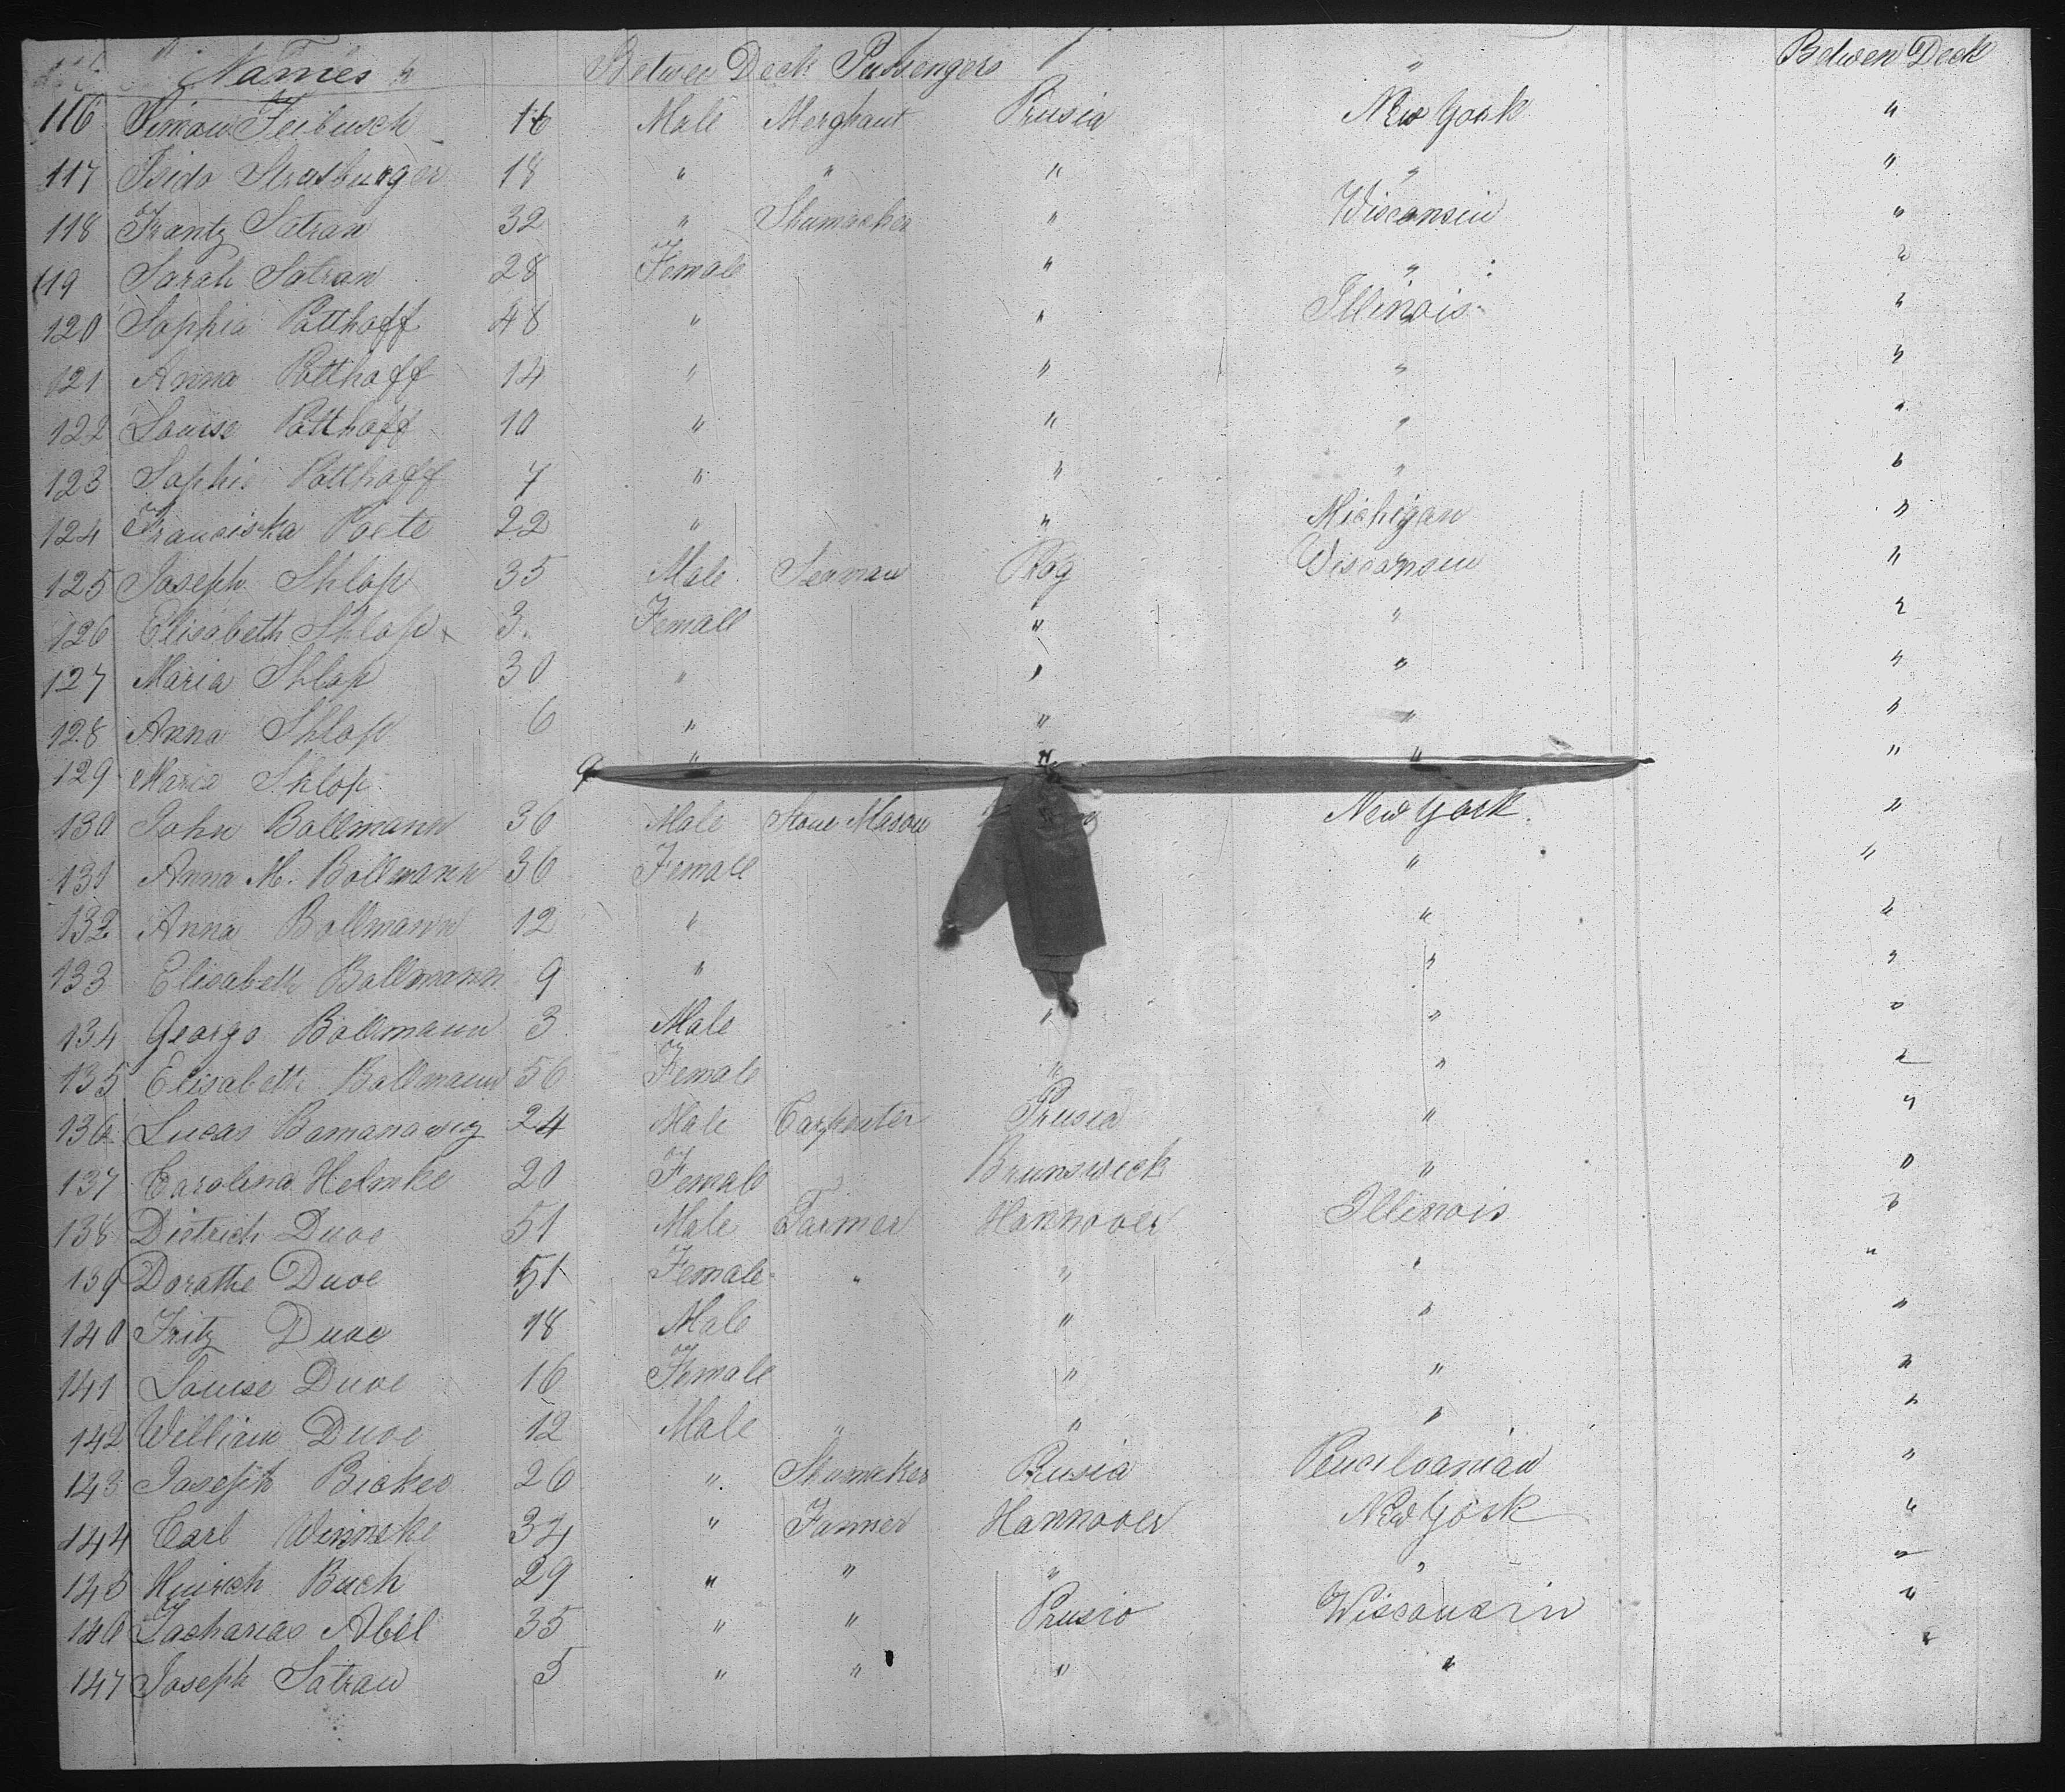 Names Betwen Deck Passengers " Betwen Deck
116 Simon Feibusch 16 Male Merghant Prusia New York "
117 Isido Strasburger 18 " " " " "
118 Frantz Satran 32 " Shumacker " Wisconsin "
119 Sarah Satran 28 Female " " "
120 Sophia Potthoff 48 " " Illinois "
121 Anna Potthoff 14 " " " "
122 Louise Potthoff 10 " " " "
123 Sophie Potthoff 7 " " " "
124 Franciska Poete 22 " " Michigan "
125 Joseph Shlop 35 Male Seaman Prog Wisconsin "
126 Elisabeth Shlop 3 Female " " "
127 Maria Shlop 30 " " " "
128 Anna Shlop 6 " " " "
129 Maria Shlop 9 " " " "
130 John Bollmann 36 Male Stone Mason New York "
131 Anna M. Bollmann 36 Female " "
132 Anna Bollmann 12 " " "
133 Elisabeth Bollmann 9 " " "
134 George Bollmann 3 Male " " "
135 Elisabeth Bollmann 56 Female " " "
136 Lucas Bamanawig 24 Male Carpenter Prusia " "
137 Carolina Helmke 20 Female Brunswick " "
138 Dietrich Duve 51 Male Farmer Hannover Illinois "
139 Dorathe Duve 51 Female " " " "
140 Fritz Duve 18 Male " " "
141 Louise Duve 16 Female " " "
142 William Duve 12 Male " " " "
143 Joseph Bicker 26 " Shumaker Prusia Pencilvanian "
144 Carl Winnske 34 " Farmer Hannover New York "
145 Hinrich Buch 29 " " " " "
146 Zacharias Abel 35 " " Prusio Wisconsin "
147 Joseph Satran 5 " " " " "